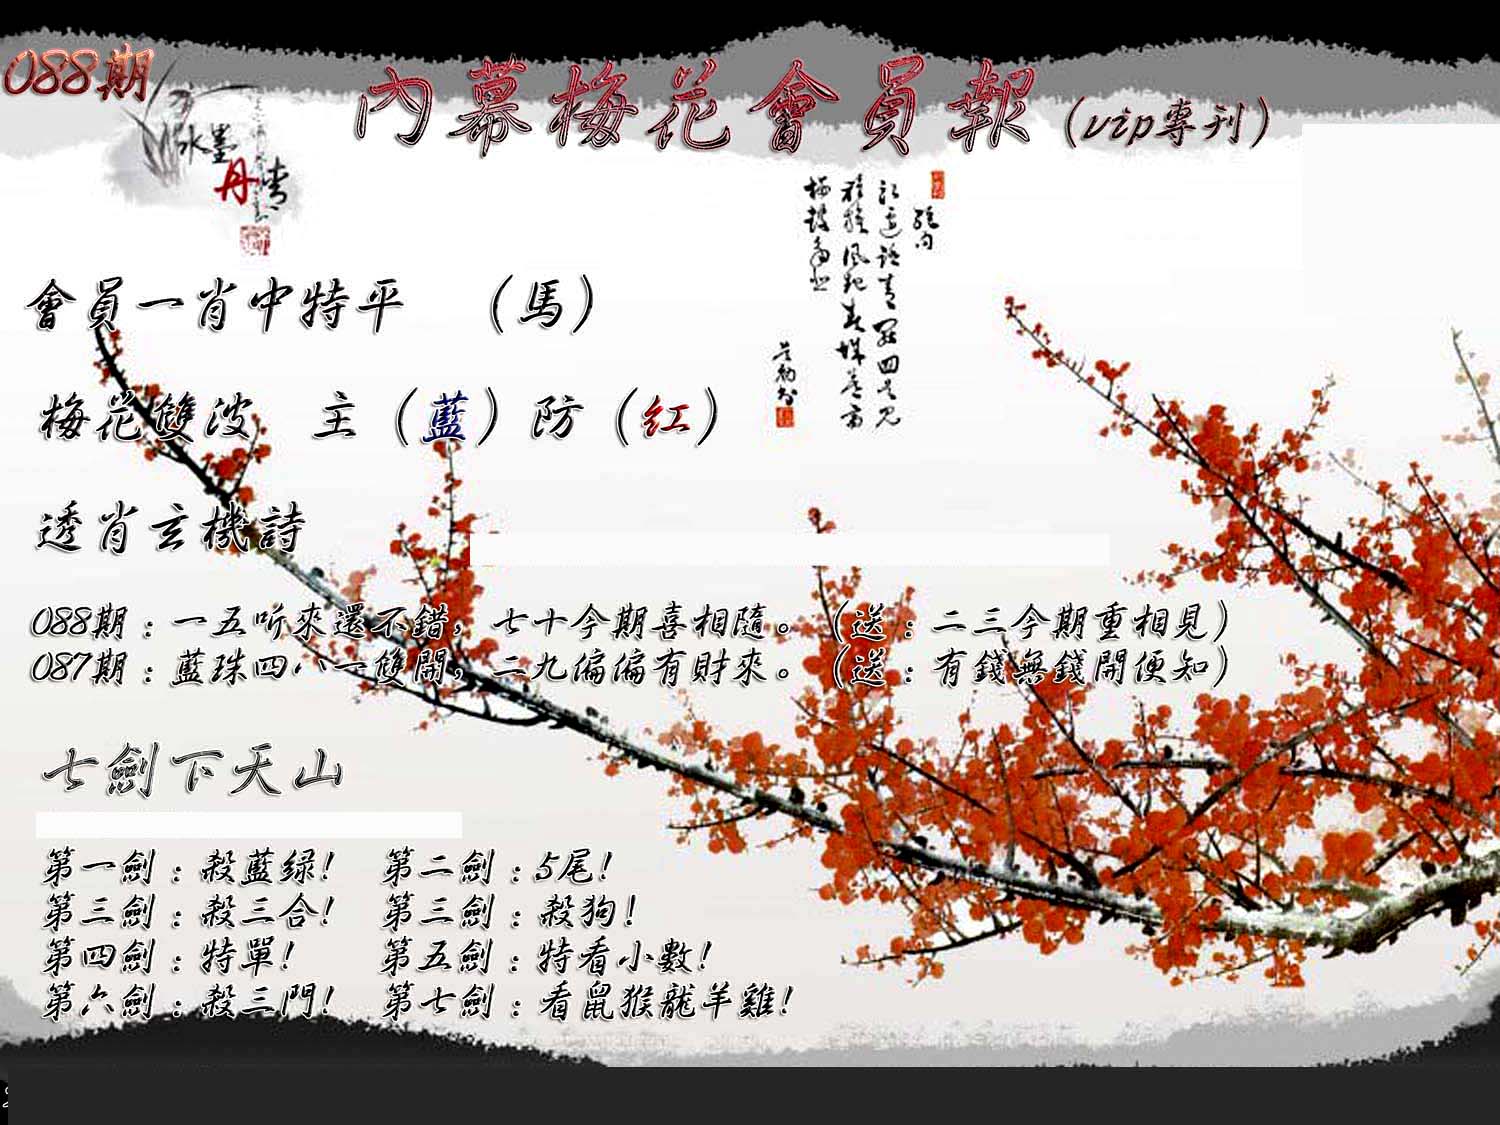 088期
內幕梅花會員報（vip專刊）
水墨
丹青
會員一肖中特平　（馬）
梅花雙波　主（藍）防（紅）
透肖玄機詩
088期：一五听來還不錯，七十今期喜相隨。（送：二三今期重相見）
087期：藍珠四八一雙開，二九偏偏有財來。（送：有錢無錢開便知）
七劍下天山
第一劍：殺藍绿!　第二劍：5尾!
第三劍：殺三合!　第三劍：殺狗!
第四劍：特單!　第五劍：特看小數!
第六劍：殺三門!　第七劍：看鼠猴龍羊雞!